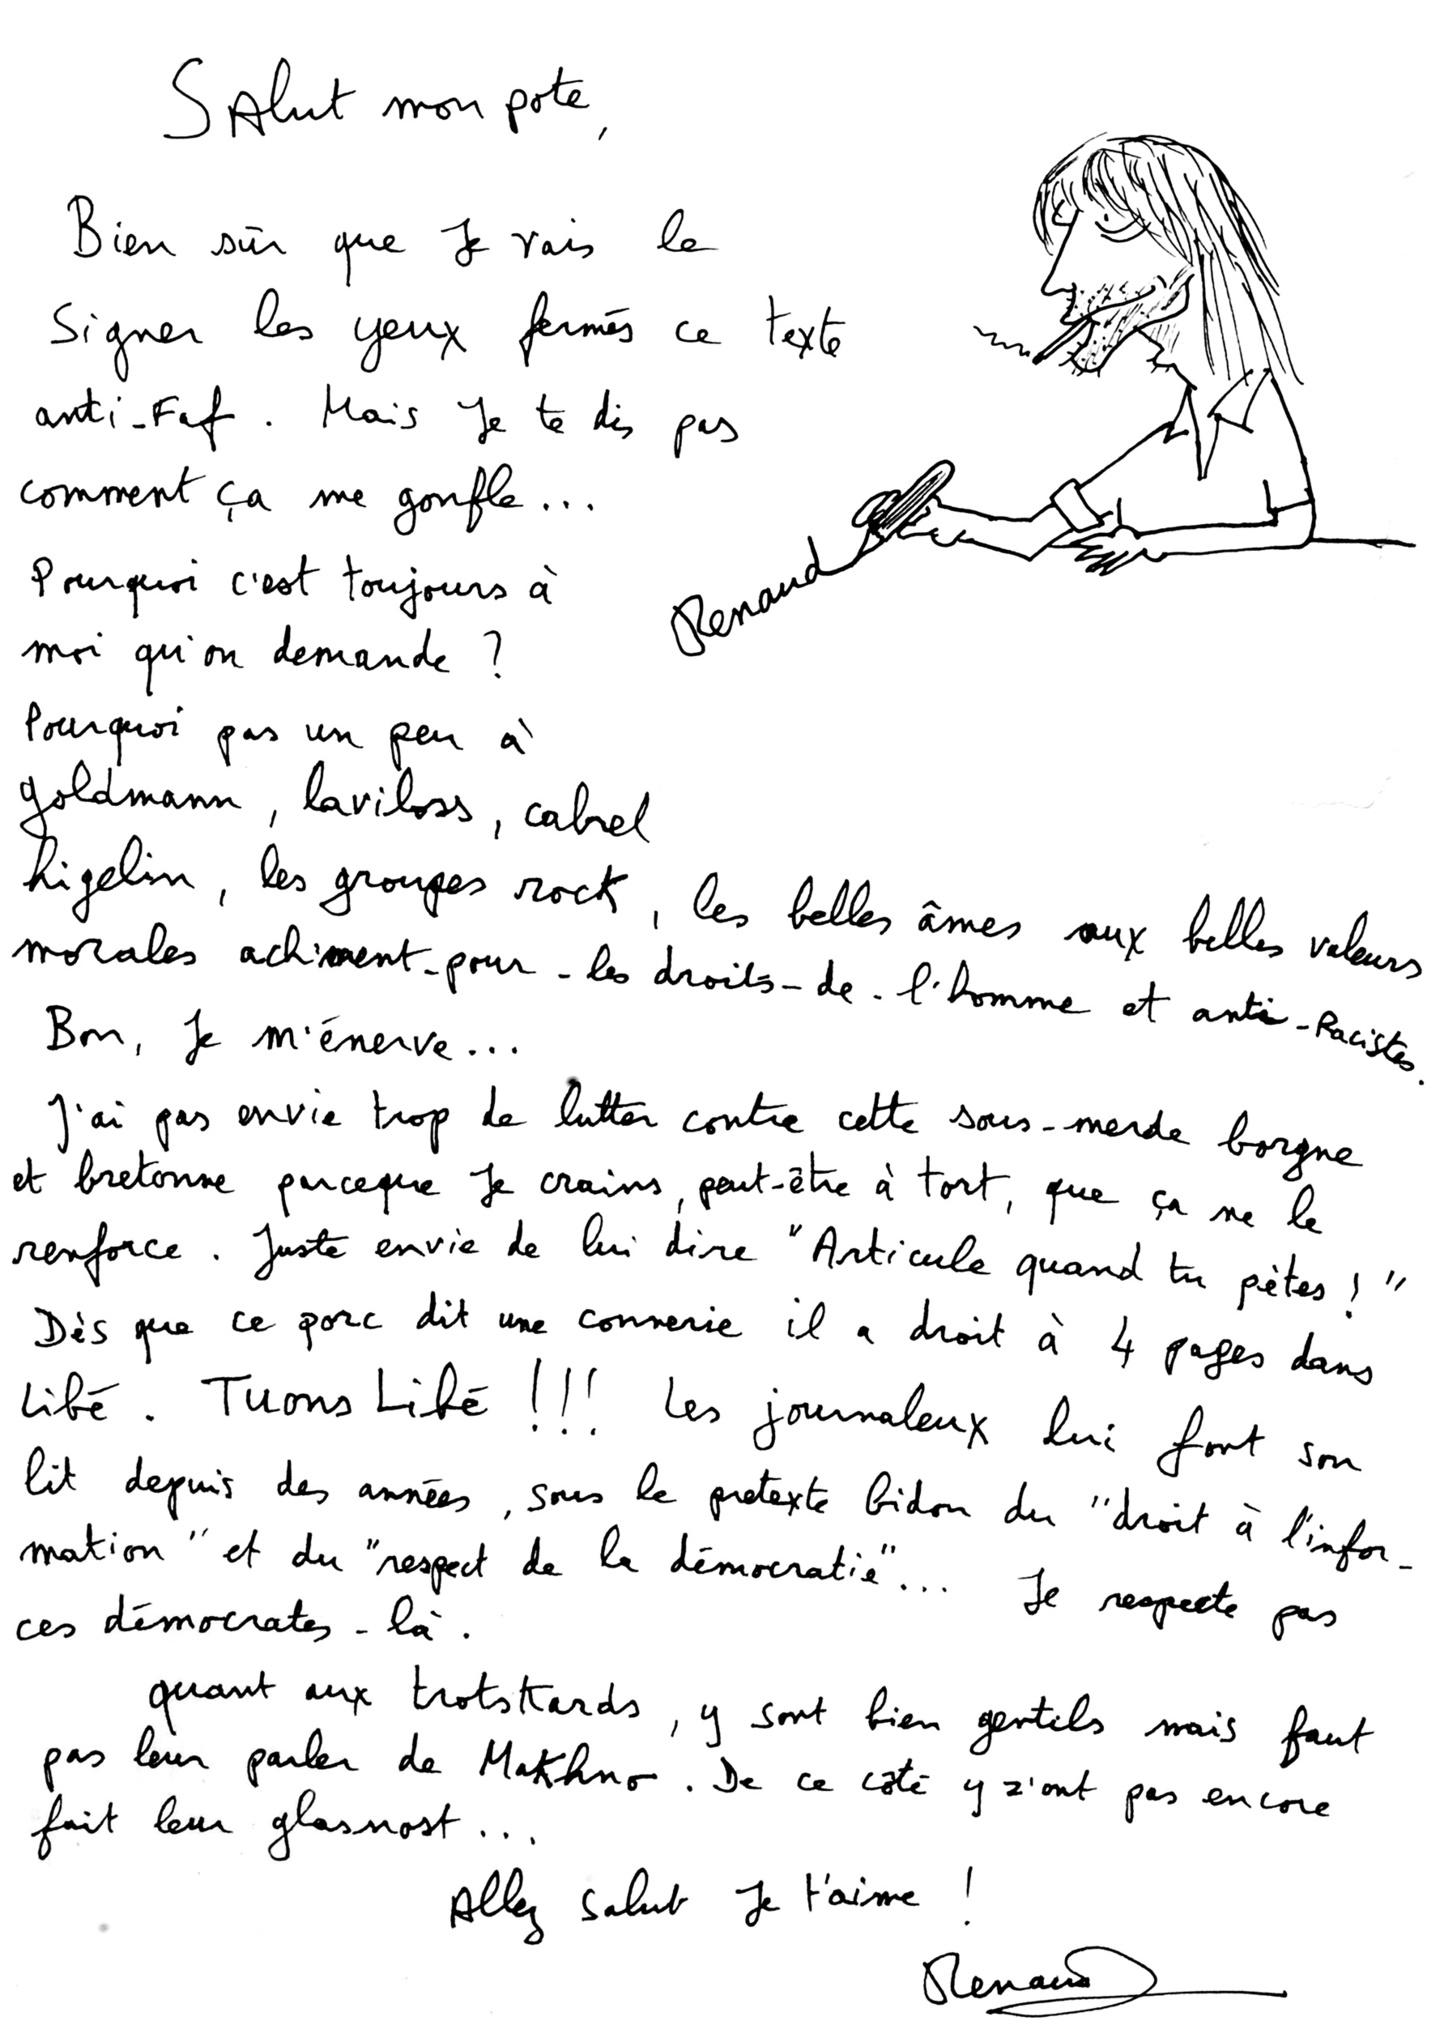 Salut mon pote,
Bien sûr que Je vais le
Signer les yeux fermés ce texte
anti-Faf. Mais Je te dis pas
comment ça me gonfle...
Pourquoi c'est toujours à
moi qu'on demande ?
Renaud
Pourquoi pas un peu à
goldmann, laviloss, cabrel
higelin, les groupes rock, les belles âmes aux belles valeurs
morales achement-pour-les droits-de-l'homme et anti-Racistes.
Bon, Je m'énerve...
J'ai pas envie trop de lutter contre cette sous-merde borgne
et bretonne parceque Je crains, peut-être à tort, que ça ne le
renforce. Juste envie de lui dire "Articule quand tu pètes !"
Dès que ce porc dit une connerie il a droit à 4 pages dans
Libé. Tuons Libé !!! Les journaleux lui font son
lit depuis des années, sous le pretexte bidon du "droit à l'infor-
mation" et du "respect de la démocratie"... Je respecte pas
ces démocrates-là.
quant aux trotskards, y sont bien gentils mais faut
pas leur parler de Makhno. De ce côté y z'ont pas encore
fait leur glasnost...
Allez salut Je t'aime !
Renaud